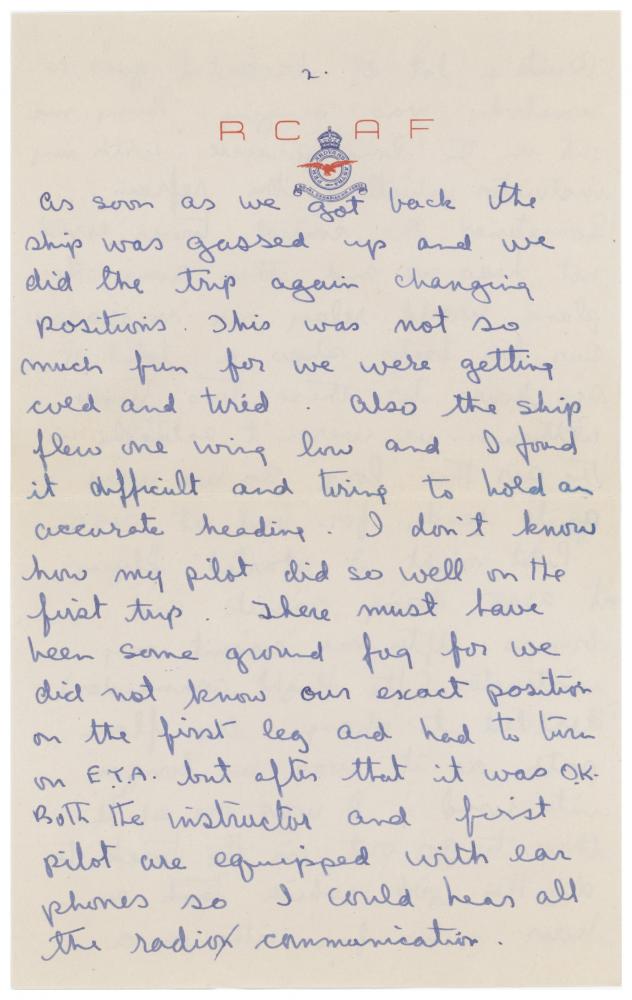 2.
RCAF
As soon as we got back the
ship was gassed up and we
did the trip again changing
positions. This was not so
much fun for we were getting
cold and tired. Also the ship
flew one wing low and I found
it difficult and tiring to hold an
accurate heading. I don't know
how my pilot did so well on the
first trip. There must have
been some ground fog for we
did not know our exact position
on the first leg and had to turn
on E.T.A. but after that it was OK.
Both the instructor and first
pilot are equipped with ear
phones so I could hear all
the radio communication.